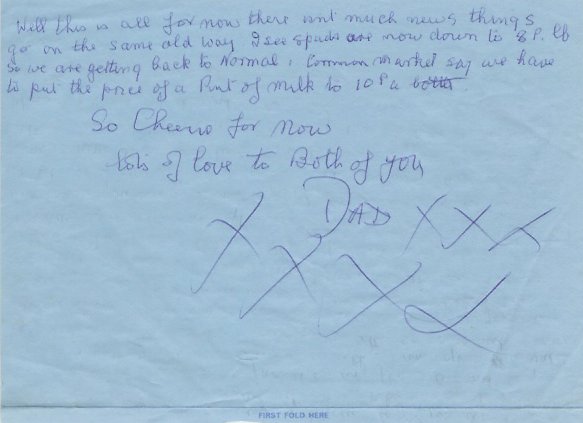 Well this is all for now there isnt much news things
go on the same old way. I see spuds are now down to 8 P. lb
So we are getting back to Normal, Common market say we have
to put the price of a Pint of milk to 10 P a
So Cheerio for now
lots of love to Both of you
DAD X X X
X X X X
FIRST FOLD HERE